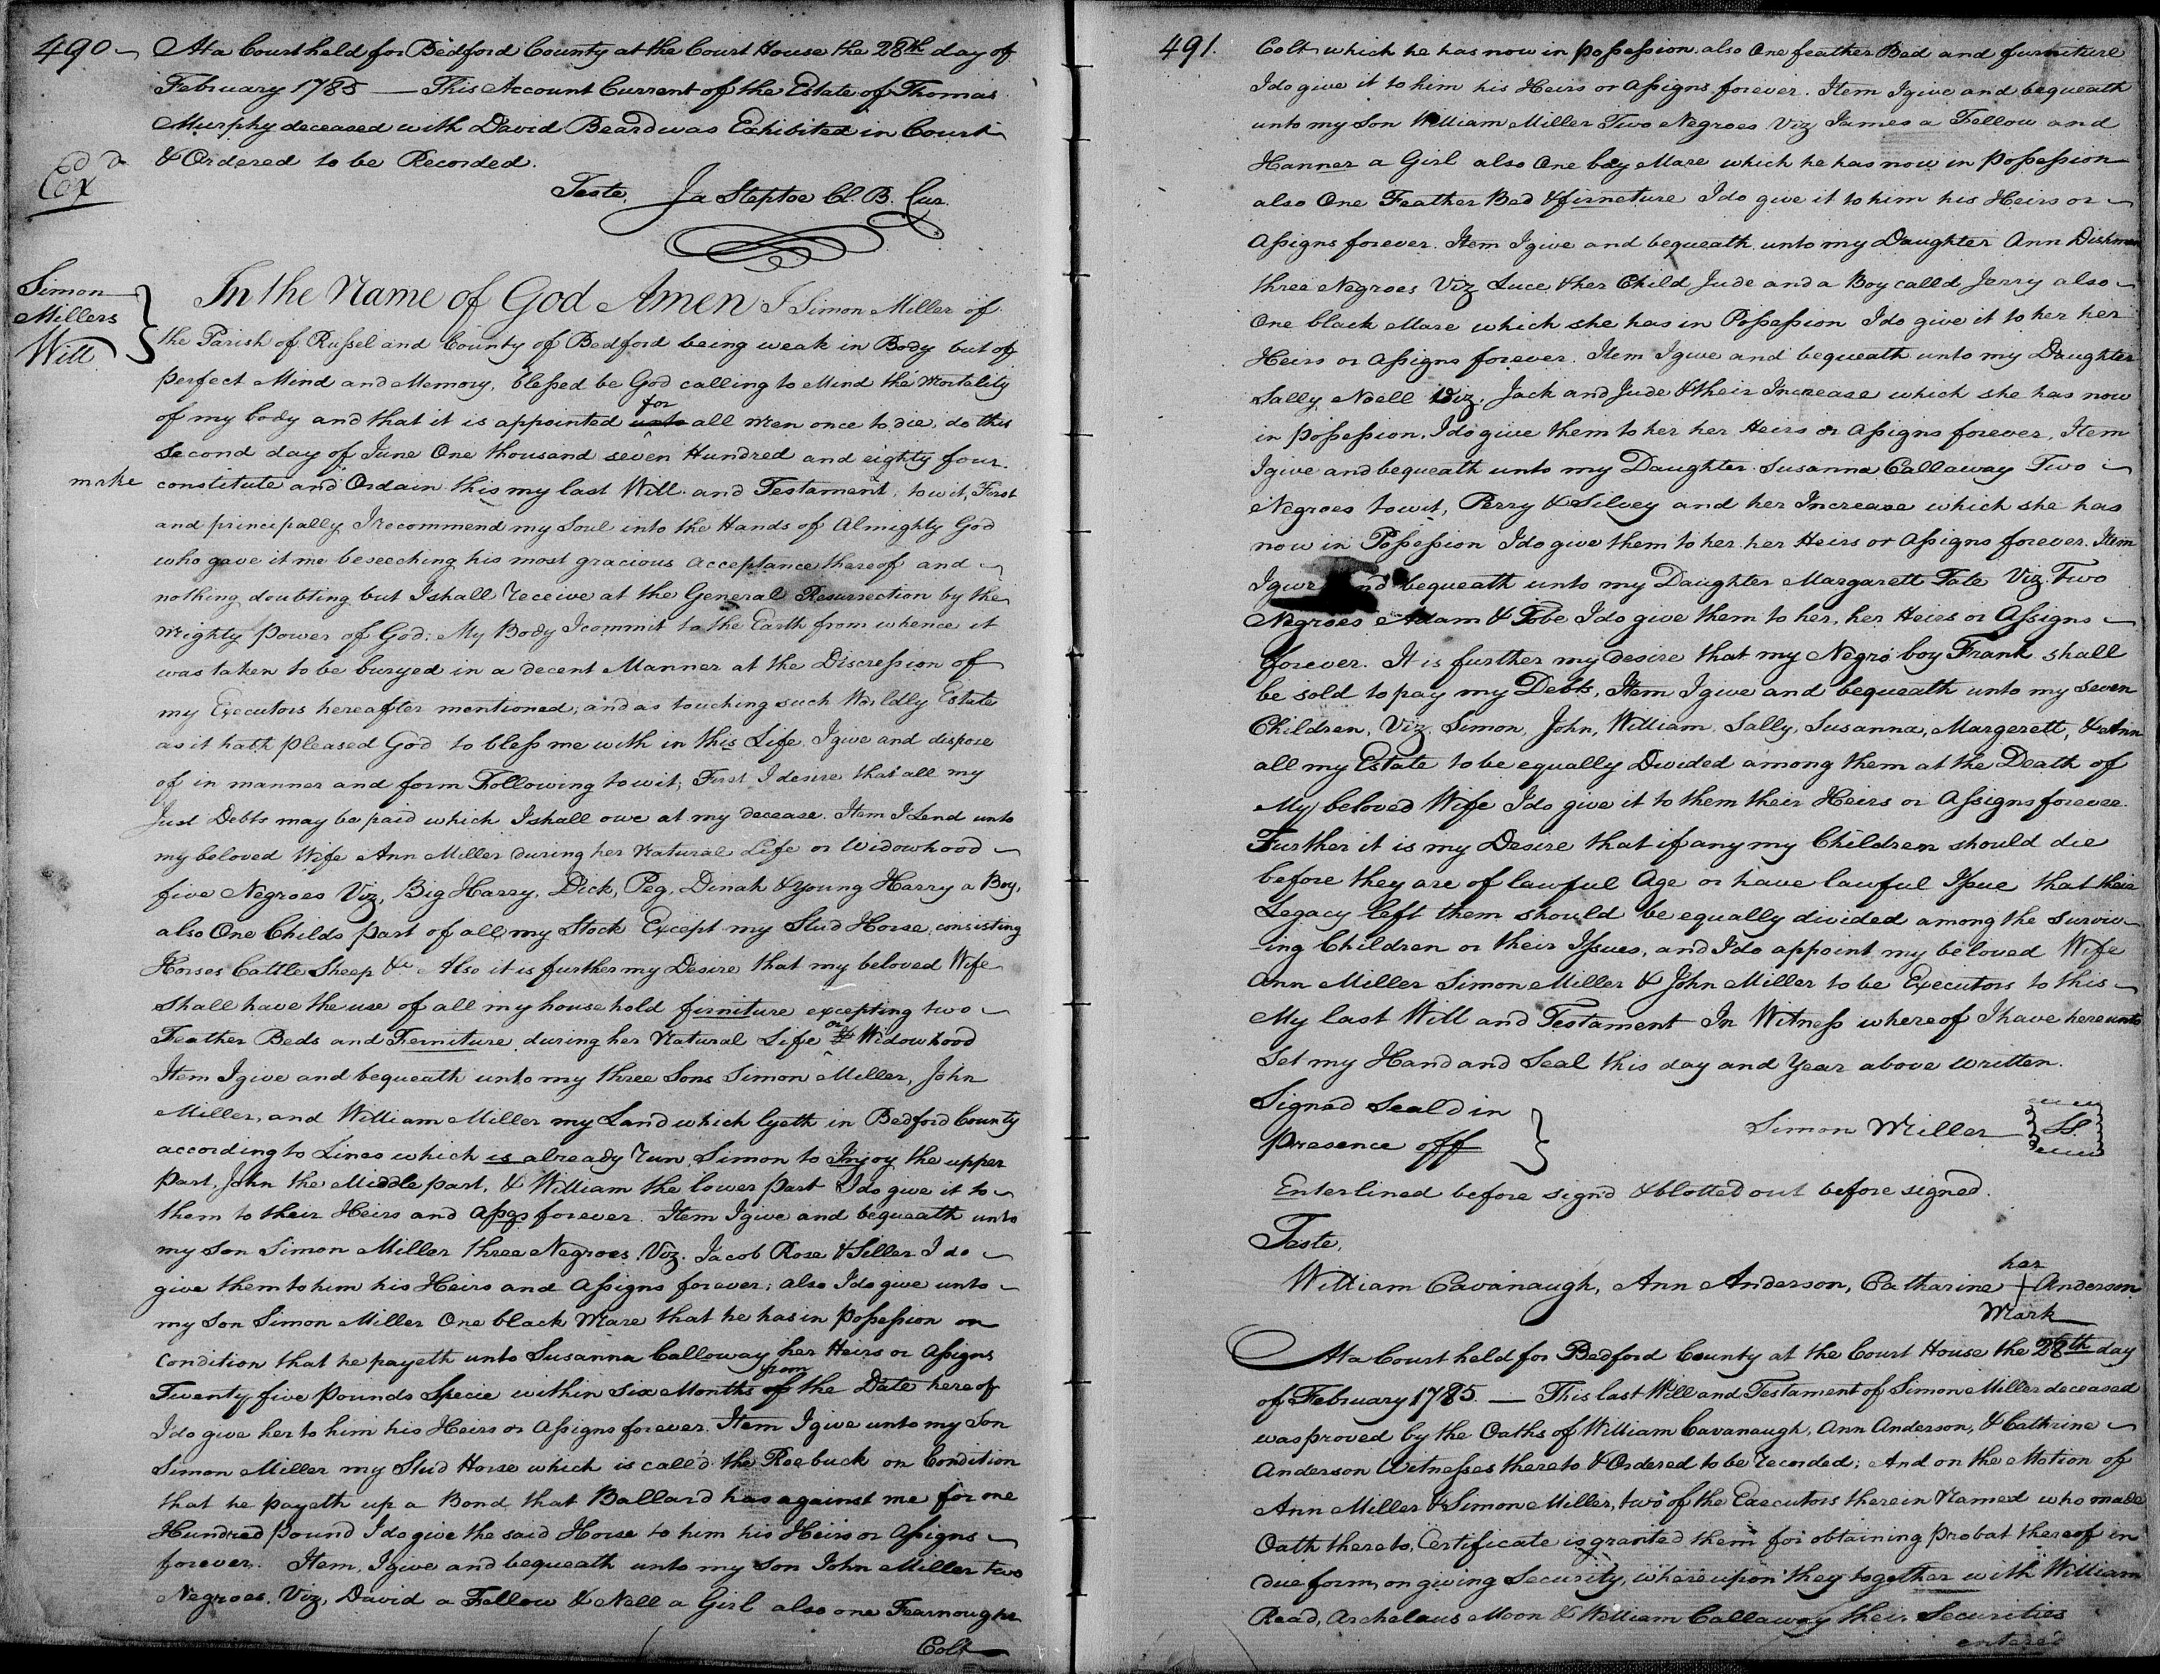 490
At a Court held for Bedford County at the Court House the 28th day of
February 1785 — This Account Current of the Estate of Thomas
Murphy deceased with David Beard was Exhibited in Court
& Ordered to be Recorded.
Teste, Ja Steptoe Cl. B. Cur.
Simon
Millers
Will
In the Name of God Amen I Simon Miller of
the Parish of Russel and County of Bedford being weak in Body but of
perfect Mind and Memory, blessed be God calling to Mind the Mortality
of my body and that it is appointed unto for all Men once to die, do this
Second day of June One thousand seven Hundred and eighty four.
make constitute and Ordain this my last Will and Testament, to wit, First
and principally I recommend my Soul into the Hands of Almighty God
who gave it me beseeching his most gracious acceptance thereof and
nothing doubting but I shall receive at the General Resurrection by the
mighty power of God; My Body I commit to the Earth from whence it
was taken to be buryed in a decent Manner at the Discression of
my Executors hereafter mentioned; and as touching such Worldly Estate
as it hath pleased God to bless me with in this Life I give and dispose
of in manner and form Following to wit; First I desire that all my
Just Debts may be paid which I shall owe at my decease. Item I Lend unto
my beloved Wife Ann Miller during her Natural Life or Widowhood
five Negroes Viz, Big Harry, Dick, Peg, Dinah & young Harry a Boy,
also One Childs part of all my Stock Except my Stud Horse, consisting
Horses Cattle Sheep &c. Also it is further my Desire that my beloved Wife
shall have the use of all my household firniture excepting two
Feather Beds and Ferniture during her Natural Life or Widowhood
Item I give and bequeath unto my three Sons Simon Miller, John
Miller, and William Miller my Land which lyeth in Bedford County
according to Lines which is already run, Simon to Injoy the upper
part, John the Middle part, & William the lower part I do give it to
them to their Heirs and Assgs forever. Item I give and bequeath unto
my Son Simon Miller three Negroes, Viz. Jacob Rose & Seller I do
give them to him his Heirs and Assigns forever; also I do give unto
my Son Simon Miller One black Mare that he has in Possession on
Condition that he payeth unto Susanna Calloway her Heirs or Assigns
Twenty five pounds Specie within six Months of from the Date hereof
I do give her to him his Heirs or Assigns forever. Item I give unto my Son
Simon Miller my Stud Horse which is call'd the Roebuck on Condition
that he payeth up a Bond that Ballard has against me for one
Hundred pound I do give the said Horse to him his Heirs or Assigns
forever. Item, I give and bequeath unto my Son John Miller two
Negroes, Viz, David a Fellow & Nell a Girl also one Fearnought
Colt
491.
Colt which he has now in possession also One feather Bed and furniture
I do give it to him his Heirs or Assigns forever. Item I give and bequeath
unto my Son William Miller Two Negroes Viz James a Fellow and
Hanner a Girl also One bay Mare which he has now in possession
also One Feather Bed & firneture I do give it to him his Heirs or
Assigns forever. Item I give and bequeath unto my Daughter Ann Dishman
three Negroes Viz Luce & her Child Jude and a Boy calld Jerry also
One black Mare which she has in Possession I do give it to her her
Heirs or Assigns forever. Item I give and bequeath unto my Daughter
Sally Noell Viz. Jack and Jude & their Increase which she has now
in possession, I do give them to her her Heirs or Assigns forever, Item
I give and bequeath unto my Daughter Susanna Callaway Two
Negroes to wit, Perry & Silvey and her Increase which she has
now in Possession I do give them to her her Heirs or Assigns forever. Item
I give and bequeath unto my Daughter Margarett Tate Viz. Two
Negroes Adam & Tobe I do give them to her, her Heirs or Assigns
forever. It is further my desire that my Negro boy Frank shall
be sold to pay my Debts, Item I give and bequeath unto my seven
Children, Viz. Simon, John, William, Sally, Susanna, Margerett, & Ann
all my Estate to be equally Divided among them at the Death of
My beloved Wife I do give it to them their Heirs or Assigns forever.
Further it is my Desire that if any my Children should die
before they are of lawful Age or have lawful Issue that their
Legacy left them should be equally divided among the surviv-
ing Children or their Issues, and I do appoint my beloved Wife
Ann Miller Simon Miller & John Miller to be Executors to this
My last Will and Testament In Witness whereof I have hereunto
Set my Hand and Seal this day and Year above written.
Signed Seald in
presence off
Simon Miller LS.
Enterlined before signd & blotted out before signed.
Teste,
William Cavanaugh, Ann Anderson, Catharine her + Mark Anderson
At a Court held for Bedford County at the Court House the 28th day
of February 1785. — This last Will and Testament of Simon Miller deceased
was proved by the Oaths of William Cavanaugh, Ann Anderson, & Cathrine
Anderson Witnesses thereto & Ordered to be recorded; And on the Motion of
Ann Miller & Simon Miller, two of the Executors therein Named who made
Oath thereto, Certificate is granted them for obtaining Probat thereof in
due form, on giving Security, whereupon they together with William
Read, Archelaus Moon & William Callaway their Securities
entered